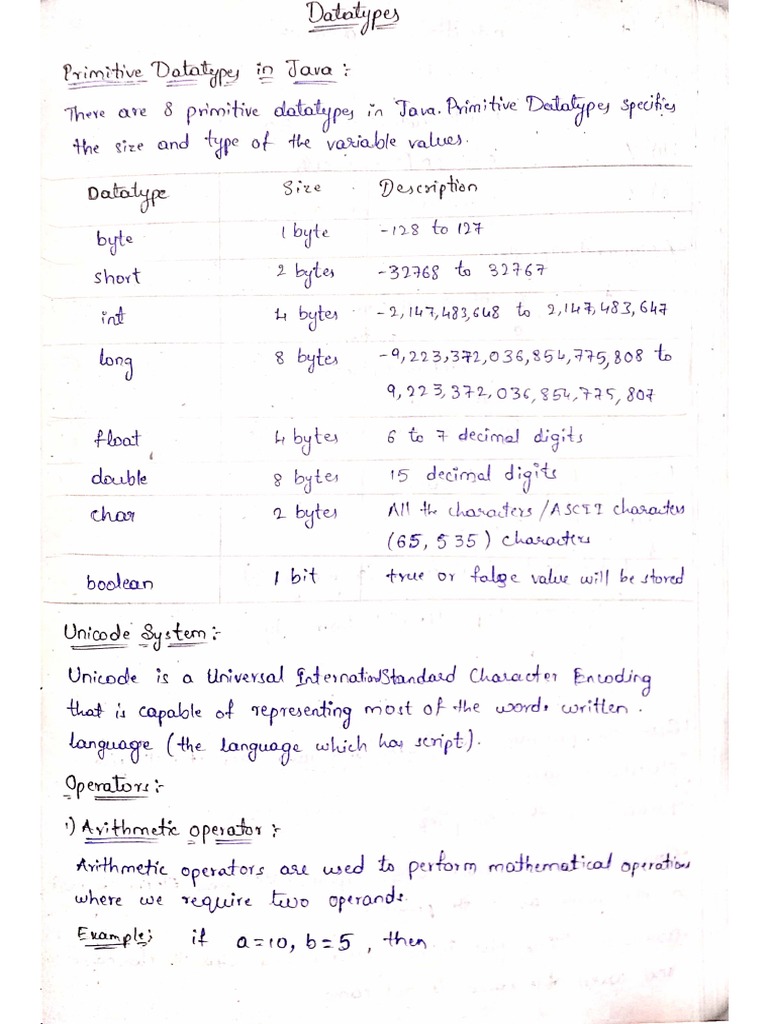 Datatypes
Primitive Datatypes in Java :
There are 8 primitive datatypes in Java. Primitive Datatypes specifies
the size and type of the variable values.
Datatype Size Description
byte 1 byte -128 to 127
short 2 bytes -32768 to 32767
int 4 bytes -2,147,483,648 to 2,147,483,647
long 8 bytes -9,223,372,036,854,775,808 to
9,223,372,036,854,775,807
float 4 bytes 6 to 7 decimal digits
double 8 bytes 15 decimal digits
char 2 bytes All the characters /ASCII characters
(65,535) characters
boolean 1 bit true or false value will be stored
Unicode System :-
Unicode is a Universal International Standard Character Encoding
that is capable of representing most of the words written.
language (the language which has script).
Operators :-
1) Arithmetic operator :-
Arithmetic operators are used to perform mathematical operations
where we require two operands.
Example; if a=10, b=5, then